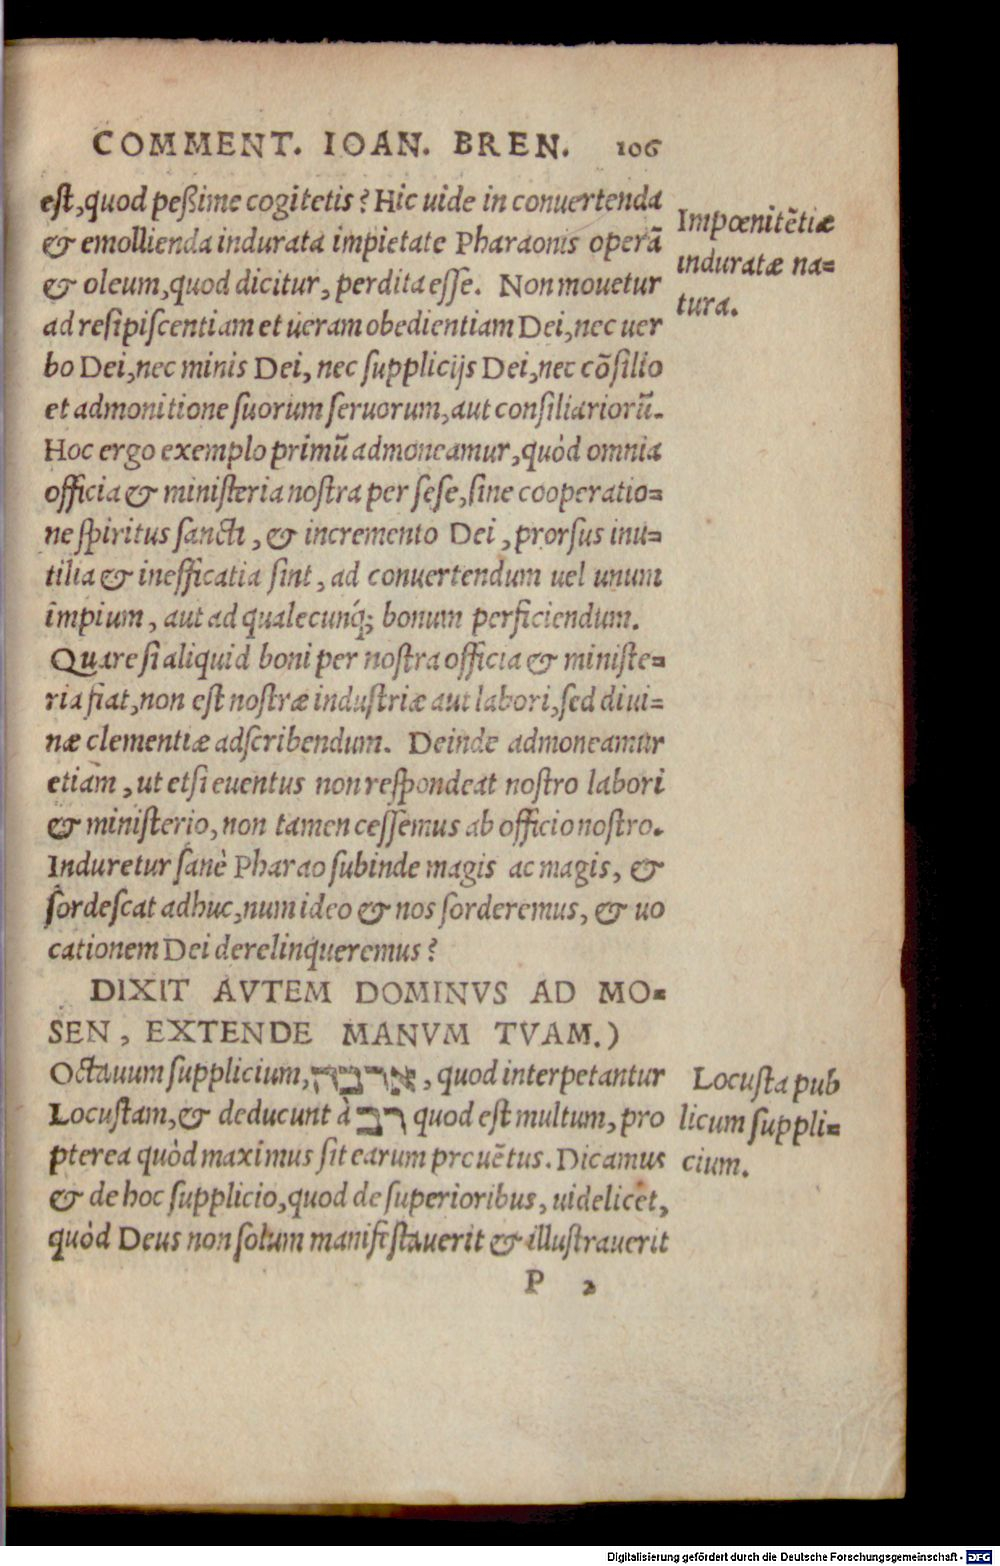 COMMENT. IOAN. BREN. 106
est, quod peßime cogitetis? Hic uide in conuertenda
& emollienda indurata impietate Pharaonis operã
& oleum, quod dicitur, perdita esse. Non mouetur
ad resipiscentiam et ueram obedientiam Dei, nec uer
bo Dei, nec minis Dei, nec supplicijs Dei, nec cõsilio
et admonitione suorum seruorum, aut consiliariorũ.
Hoc ergo exemplo primũ admoneamur, quòd omnia
officia & ministeria nostra per sese, sine cooperatio=
ne spiritus sancti, & incremento Dei, prorsus inu=
tilia & inefficatia sint, ad conuertendum uel unum
impium, aut ad qualecunq́; bonum perficiendum.
Quare si aliquid boni per nostra officia & ministe=
ria fiat, non est nostræ industriæ aut labori, sed diui=
næ clementiæ adscribendum. Deinde admoneamur
etiam, ut etsi euentus non respondeat nostro labori
& ministerio, non tamen cessemus ab officio nostro.
Induretur sanè Pharao subinde magis ac magis, &
sordescat adhuc, num ideo & nos sorderemus, & uo
cationem Dei derelinqueremus?
DIXIT AVTEM DOMINVS AD MO=
SEN, EXTENDE MANVM TVAM.)
Octauum supplicium, ארבה, quod interpetantur
Locustam, & deducunt à רב quod est multum, pro
pterea quòd maximus sit earum prouẽtus. Dicamus
& de hoc supplicio, quod de superioribus, uidelicet,
quòd Deus non solum manifestauerit & illustrauerit
P 2
Impœnitẽtiæ
induratæ na=
tura.
Locusta pub
licum suppli=
cium.
Digitalisierung gefördert durch die Deutsche Forschungsgemeinschaft - DFG